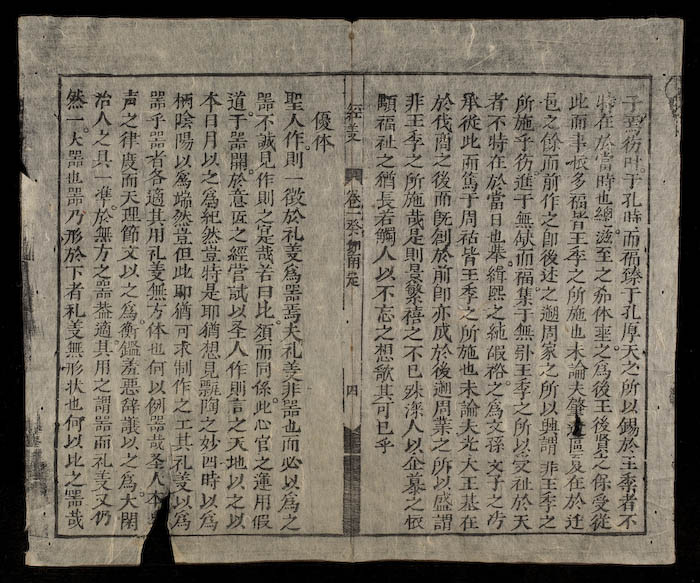 于焉彷于孔時而福臻于孔厚天之所以錫於王季者不
特在於當時也繩滋至之体垂之為後王後賢之保受從
此而事多福皆王季之所施也未論夫肇造區夏在於迓
之保而前作之即後述之遡周家之所以興謂非王季之
所施乎彷進于無缺而福集于無引王季之所以受祉於天
者不特在於當日也緝熙之純嘏裕之為文孫文子之
承從此而篤于周祜皆王季之所施也未論夫光大王基在
於伐商之後而既創於前即亦成於後遡周業之所以盛謂
非王季之所施哉是則景繁禧之不已殊深人以企慕之懷
顯福祉之猶長若觸人以不忘之想歆其可已乎
經義 卷一 四
優体
聖人作則一徵於礼義為器焉夫礼義非器也而必以為之
器不誠見作則之寔哉若曰比須而同係此心官之運用假
道于器開於意匠之經營試以圣人作則言之天地以之以
本日月以之為紀然豈特是耶猶想見甄陶之妙四時以為
柄陰陽以為端然豈但此耶猶可求制作之工其礼義以為
器乎器者各適其用礼義無方体也何以例器哉圣人本
声之律度而天理節文以之為衡鑑羞惡辞讓以之為大閑
治人之具一準於無方之器蓋適其用之謂器而礼義又仍
然一大器也器乃形於下者礼義無形状也何以比之器哉